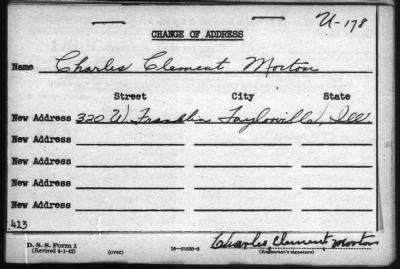 U-178
CHANGE OF ADDRESS
Name Charles Clement Morton
Street City State
New Address 320 W. Franklin Taylorville, Ill
New Address
New Address
New Address
New Address
413
D. S. S. Form 1
(Revised 4-1-42) (over) 16—21630-2 Charles Clement Morton
(Registrant's signature)